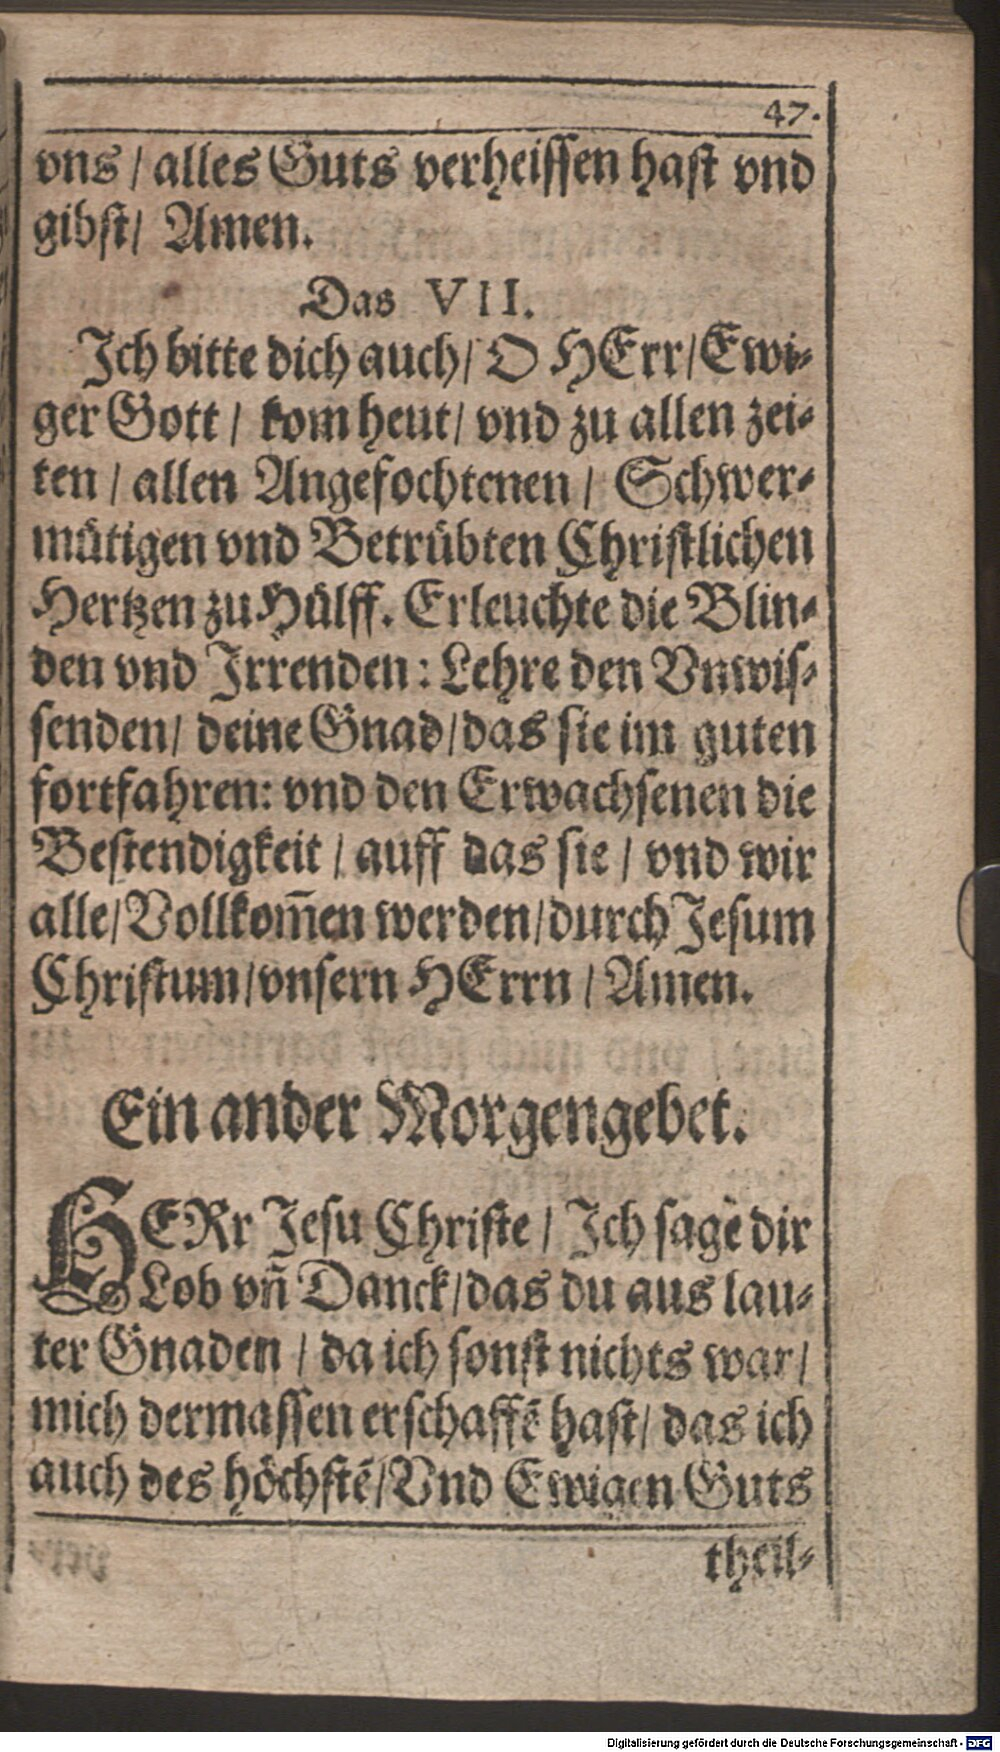 47.
vns / alles Guts verheissen hast vnd
gibst / Amen.
Das VII.
Ich bitte dich auch / O HErr / Ewi⸗
ger Gott / kom heut / vnd zu allen zei⸗
ten / allen Angefochtenen / Schwer⸗
mütigen vnd Betrübten Christlichen
Hertzen zu Hülff. Erleuchte die Blin⸗
den vnd Irrenden: Lehre den Vnwis⸗
senden / deine Gnad / das sie im guten
fortfahren: vnd den Erwachsenen die
Bestendigkeit / auff das sie / vnd wir
alle / Vollkom̃en werden / durch Jesum
Christum / vnsern HErrn / Amen.
Ein ander Morgengebet.
HERr Jesu Christe / Ich sage dir
Lob vñ Danck / das du aus lau⸗
ter Gnaden / da ich sonst nichts war /
mich dermassen erschaffẽ hast / das ich
auch des höchstẽ / Vnd Ewigen Guts
theil⸗
Digitalisierung gefördert durch die Deutsche Forschungsgemeinschaft - DFG